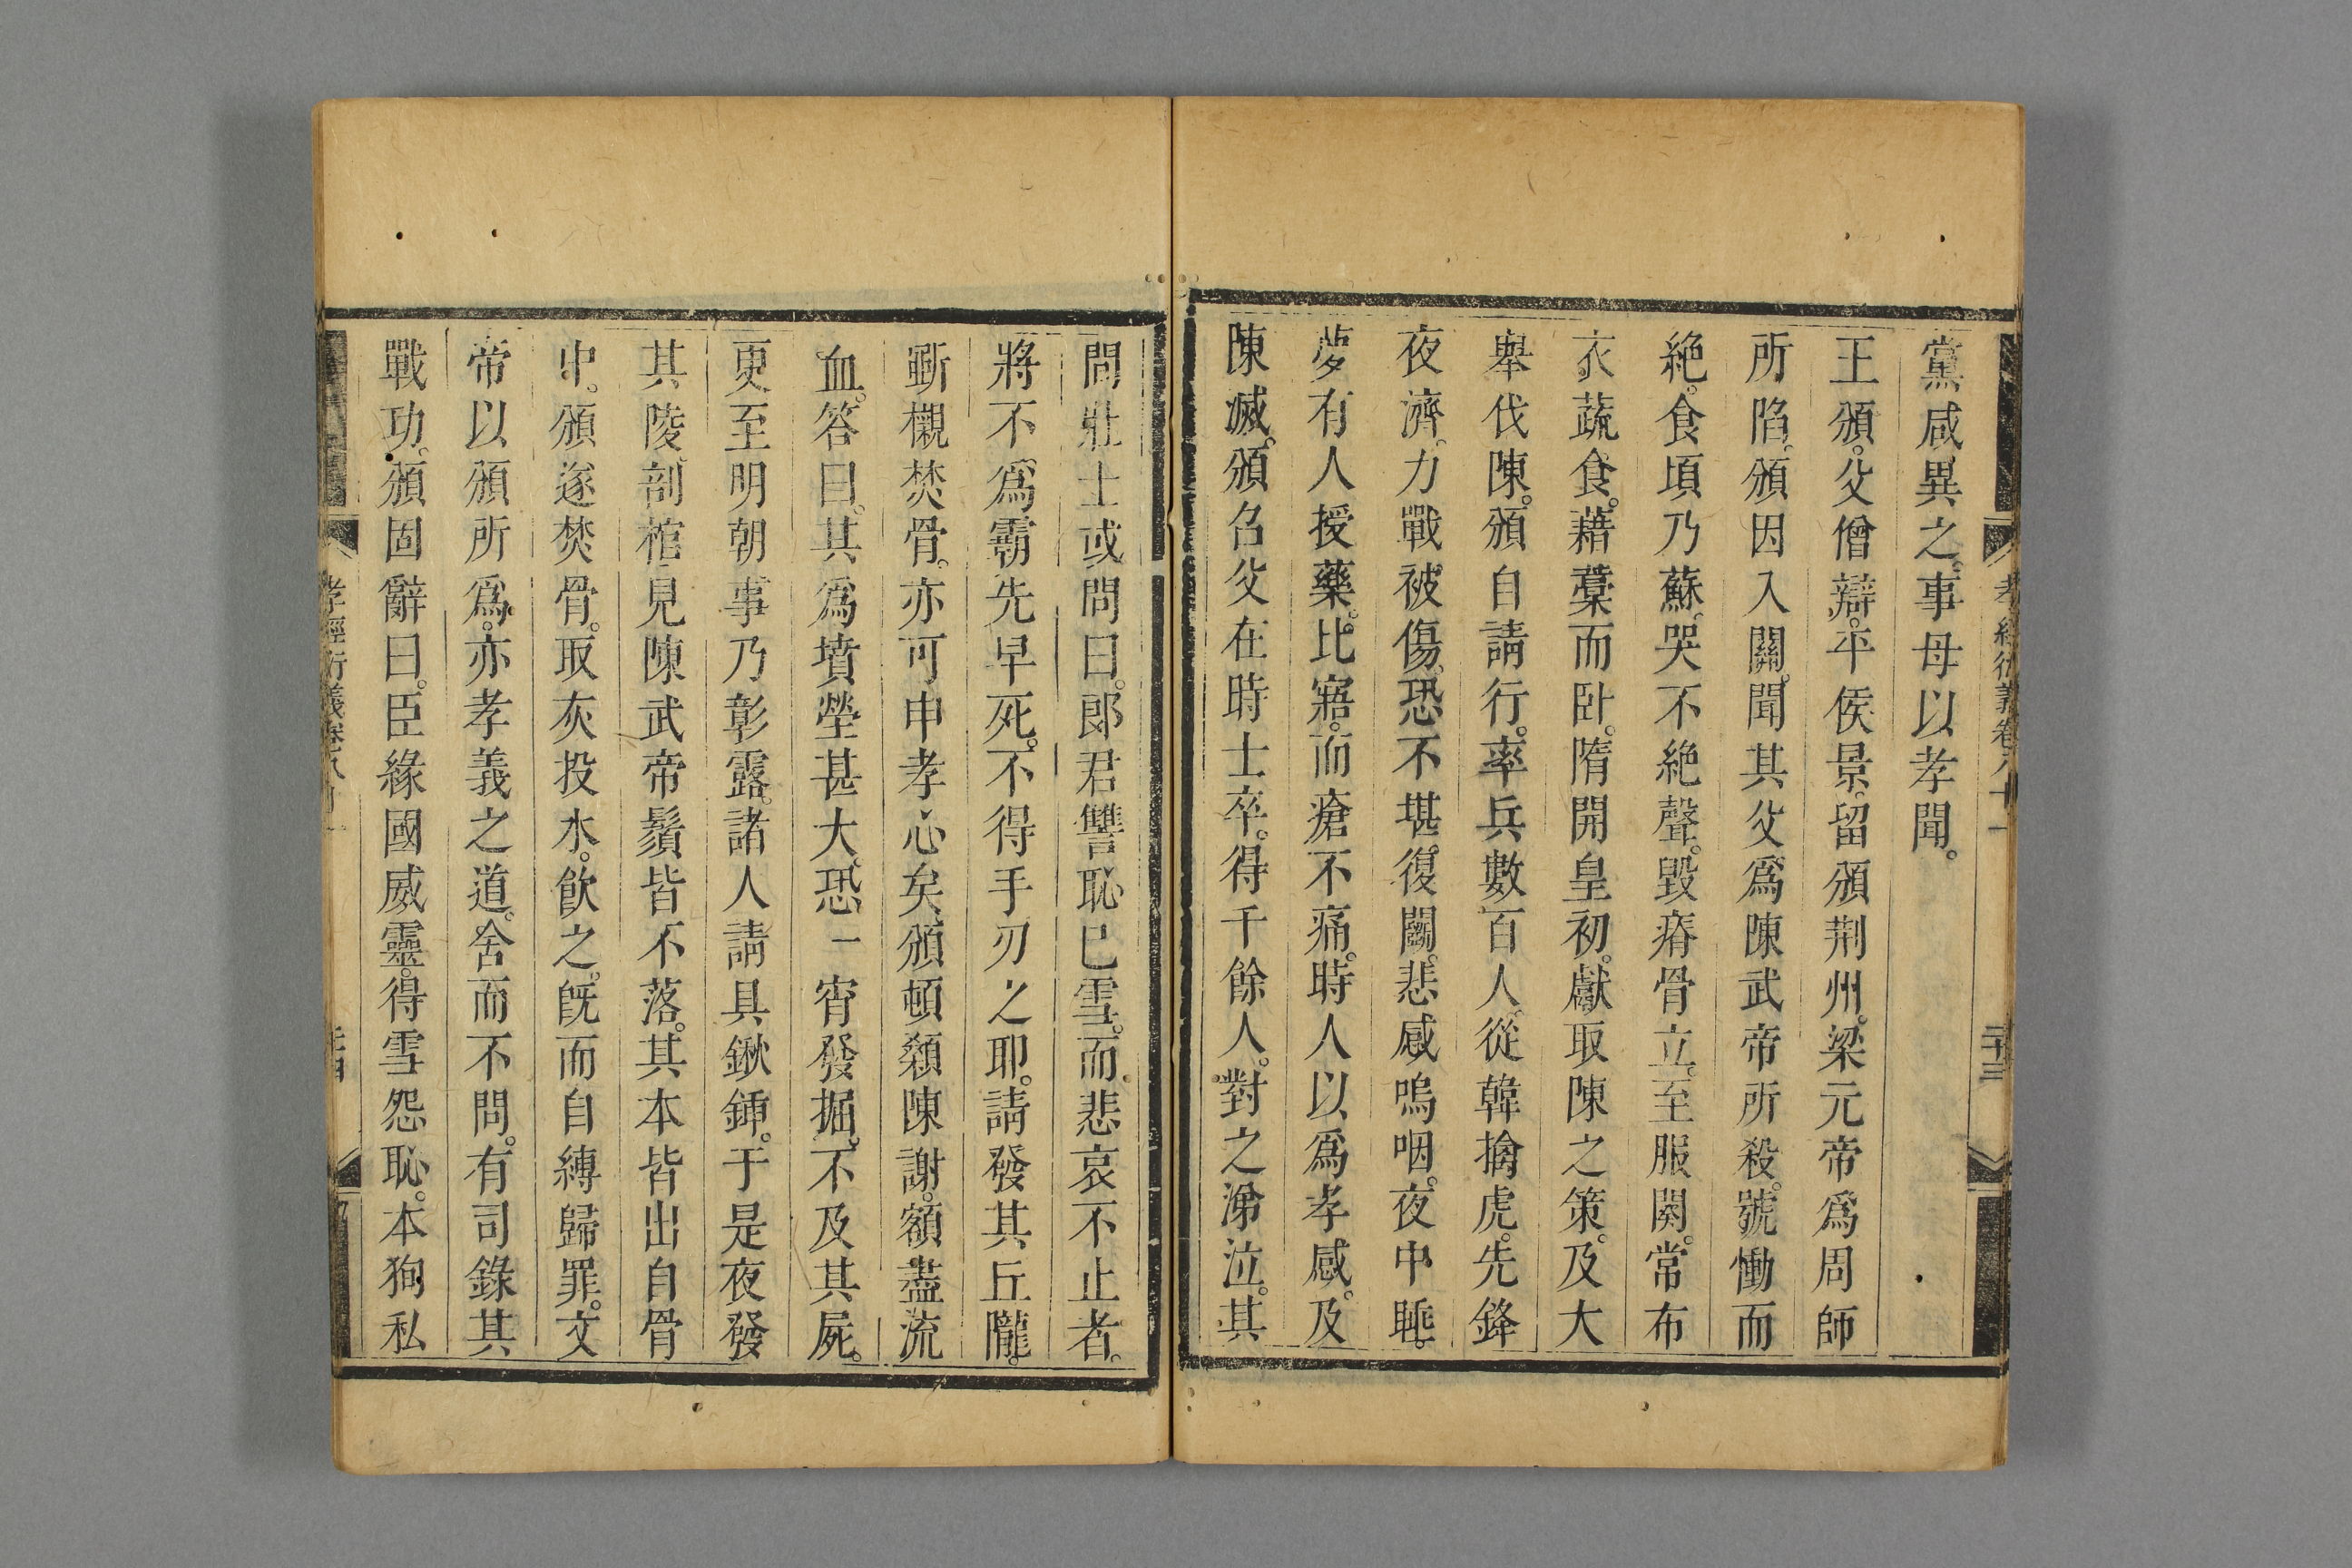 孝經衍義卷八十一
二十三
黨咸異之。事母以孝聞。
王頒。父僧辯。平侯景。留頒荆州。梁元帝爲周師
所陷。頒因入關。聞其父爲陳武帝所殺。號慟而
絶。食頃乃蘇。哭不絶聲。毀瘠骨立。至服闋。常布
衣蔬食。藉藁而卧。隋開皇初。獻取陳之策。及大
舉伐陳。頒自請行。率兵數百人。從韓擒虎。先鋒
夜濟。力戰被傷。恐不堪復鬭。悲感嗚咽。夜中睡。
夢有人授藥。比寤。而瘡不痛。時人以爲孝感。及
陳滅。頒召父在時士卒。得千餘人。對之涕泣。其
間壯士或問曰。郎君讐恥已雪。而悲哀不止者。
將不爲霸先早死。不得手刃之耶。請發其丘隴。
斲櫬焚骨。亦可申孝心矣。頒頓顙陳謝。額盡流
血。答曰。其爲墳塋甚大。恐一宵發掘。不及其屍。
更至明朝事乃彰露。諸人請具鍬鍤。于是夜發
其陵。剖棺見陳武帝鬚皆不落。其本皆出自骨
中。頒遂焚骨。取灰投水。飮之。旣而自縛歸罪。文
帝以頒所爲。亦孝義之道。舍而不問。有司錄其
戰功。頒固辭曰。臣緣國威靈。得雪怨恥。本狥私
孝經衍義卷八十一